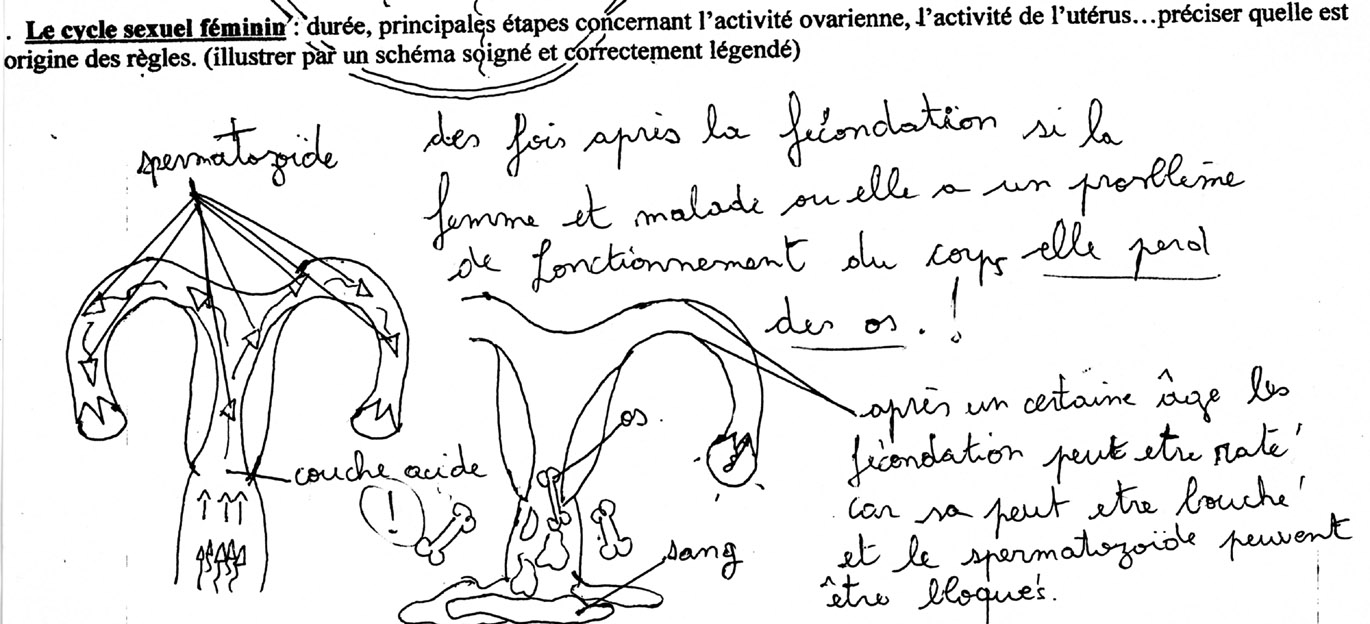 . Le cycle sexuel féminin : durée, principales étapes concernant l'activité ovarienne, l'activité de l'utérus…préciser quelle est
origine des règles. (illustrer par un schéma soigné et correctement légendé)
spermatozoïde
des fois après la fécondation si la
femme et malade ou elle a un problème
de fonctionnement du corps elle perd
des os . !
os.
après un certaine âge les
fécondation peut etre raté
car sa peut etre bouché
et le spermatozoïde peuvent
être bloqués.
couche acide
!
sang